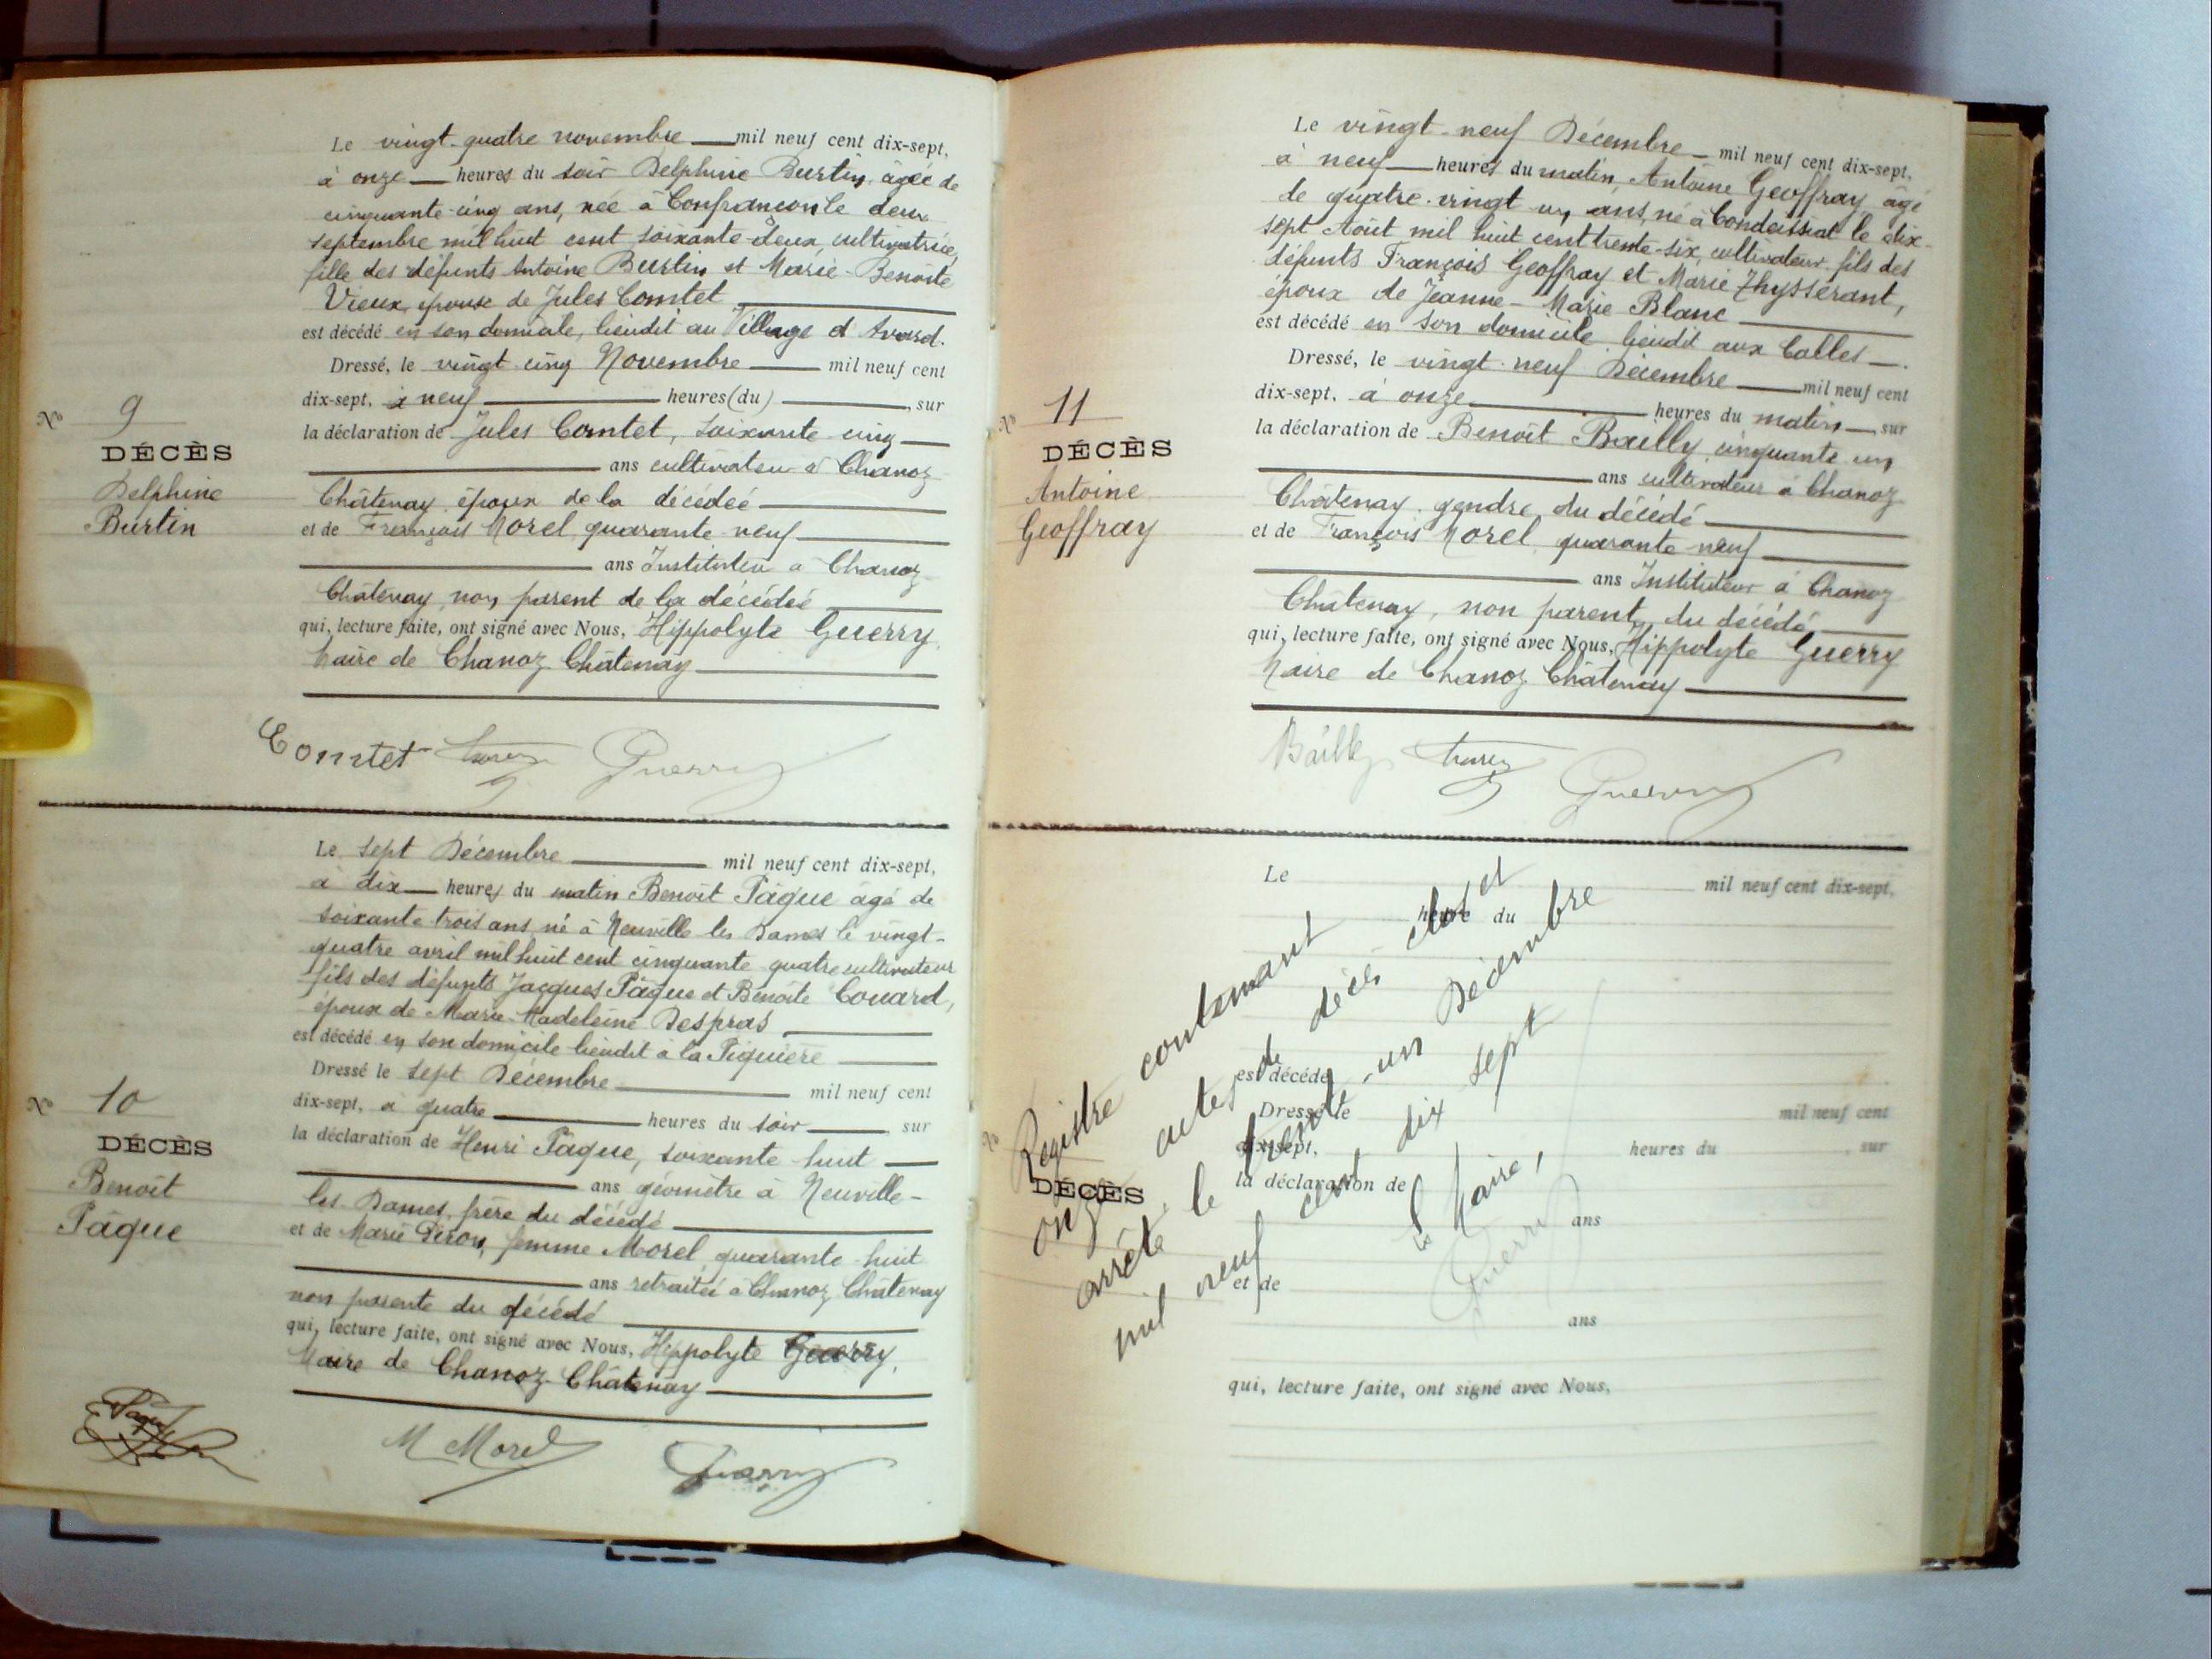 Le vingt-quatre novembre mil neuf cent dix-sept,
à onze heures du soir Delphine Burtin, âgée de
cinquante-cinq ans, née à Confrançon le deux
septembre mil huit cent soixante-deux, cultivatrice,
fille des défunts Antoine Burtin et Marie-Benoîte
Vieux, épouse de Jules Comtet
est décédé en son domicile, lieudit au Village d'Avard.
Dressé, le vingt cinq Novembre mil neuf cent
dix-sept, à neuf heures (du) , sur
la déclaration de Jules Comtet, soixante-cinq
ans cultivateur à Chanoz-
Châtenay, époux de la décédée
et de François Morel, quarante-neuf
ans Instituteur à Chanoz-
Châtenay, non parent de la décédée
qui, lecture faite, ont signé avec Nous, Hippolyte Guerry,
Maire de Chanoz-Châtenay
No 9
DÉCÈS
Delphine
Burtin
Comtet Guerry
Le sept Décembre mil neuf cent dix-sept,
à dix heures du matin Benoît Pâque âgé de
soixante trois ans, né à Neuville les Dames le vingt-
quatre avril mil huit cent cinquante quatre cultivateur
fils des défunts Jacques Pâque et Benoîte Couard,
époux de Marie-Madeleine Despras
est décédé en son domicile lieudit à la Piquière
Dressé le sept Décembre mil neuf cent
dix-sept, à quatre heures du soir , sur
la déclaration de Henri Pâque, soixante-huit
ans géomètre à Neuville-
les-Dames, frère du décédé
et de Marie Péron, femme Morel, quarante-huit
ans retraitée à Chanoz Châtenay
non parente du décédé
qui, lecture faite, ont signé avec Nous, Hippolyte Guerry,
Maire de Chanoz-Châtenay
No 10
DÉCÈS
Benoît
Pâque
Pâque M Morel Guerry
Le vingt-neuf Décembre mil neuf cent dix-sept,
à neuf heures du matin, Antoine Geoffray, âgé
de quatre-vingt un ans, né à Condeissiat le dix-
sept Août mil huit cent trente-six, cultivateur fils des
défunts François Geoffray et Marie Thysserant,
époux de Jeanne-Marie Blanc
est décédé en son domicile lieudit aux Calles .
Dressé, le vingt-neuf Décembre mil neuf cent
dix-sept, à onze heures du matin sur
la déclaration de Benoît Bailly, cinquante un
ans cultivateur à Chanoz-
Châtenay, gendre du décédé
et de François Morel, quarante-neuf
ans Instituteur à Chanoz
Châtenay, non parent du décédé
qui, lecture faite, ont signé avec Nous, Hippolyte Guerry
Maire de Chanoz Châtenay
No 11
DÉCÈS
Antoine
Geoffray
Bailly Guerry
Le mil neuf cent dix-sept,
heure du
est décédé
Dressé le mil neuf cent
dix-sept, heures du , sur
la déclaration de
ans
et de
ans
qui, lecture faite, ont signé avec Nous,
No
DÉCÈS
Registre contenant
onze actes de décès clos et
arrêté le trente-un Décembre
mil neuf cent dix sept
Le Maire,
Guerry